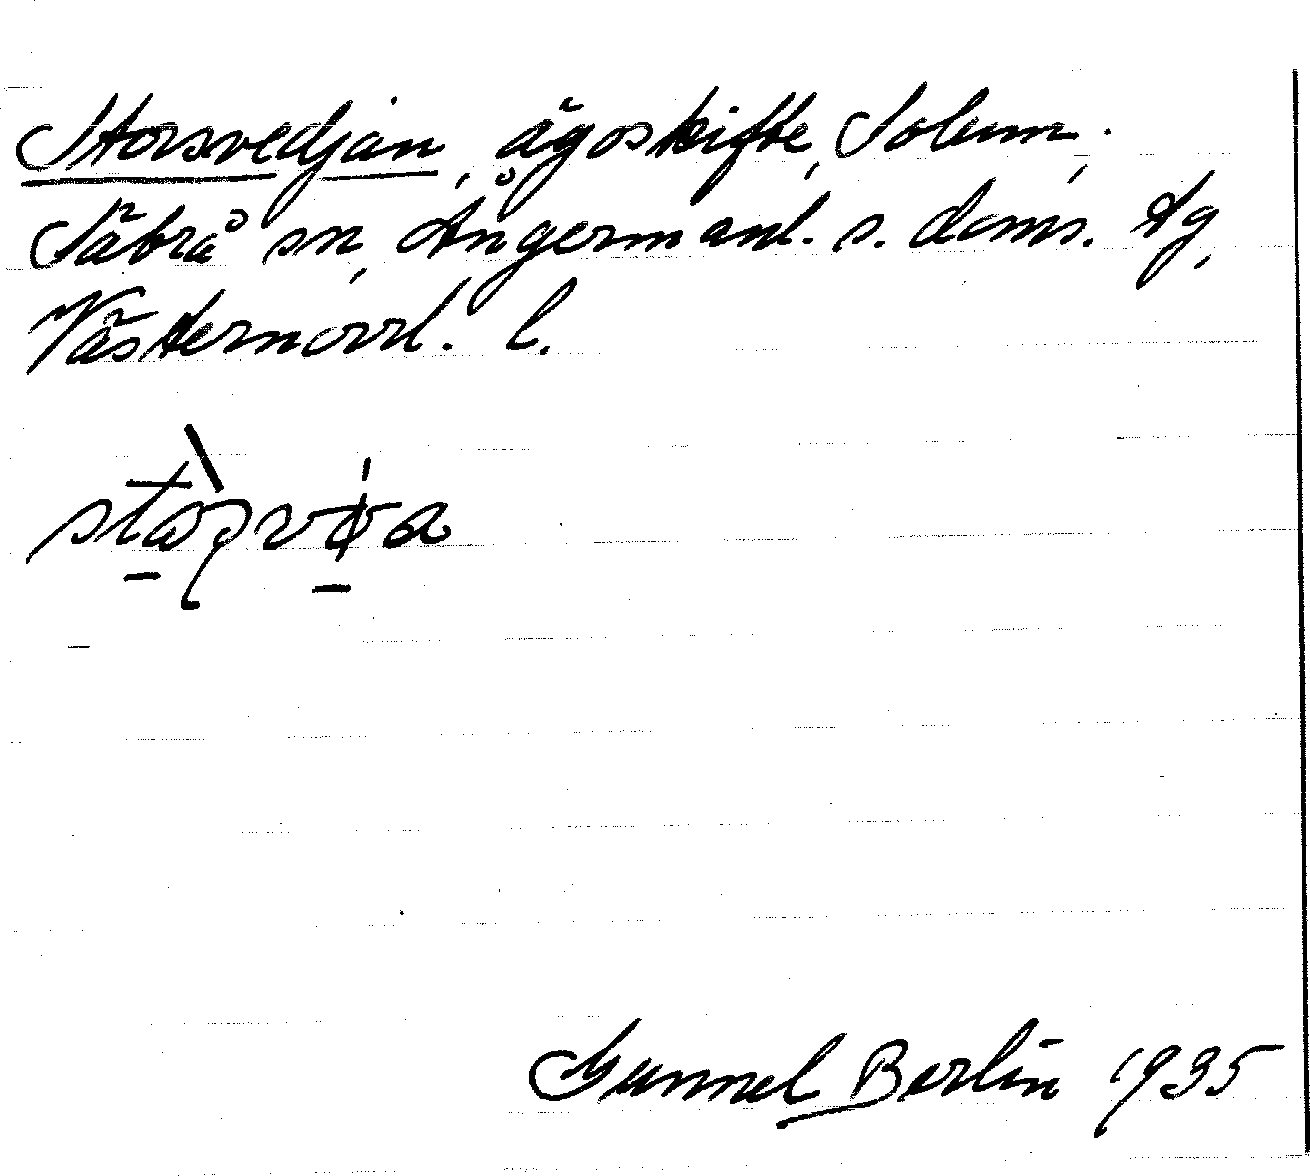 Storsvedjan, ägoskifte, Solum,
Säbrå sn, Ångermanl. s. doms. Åg,
Västernorrl. l.
Gunnel Berlin 1935